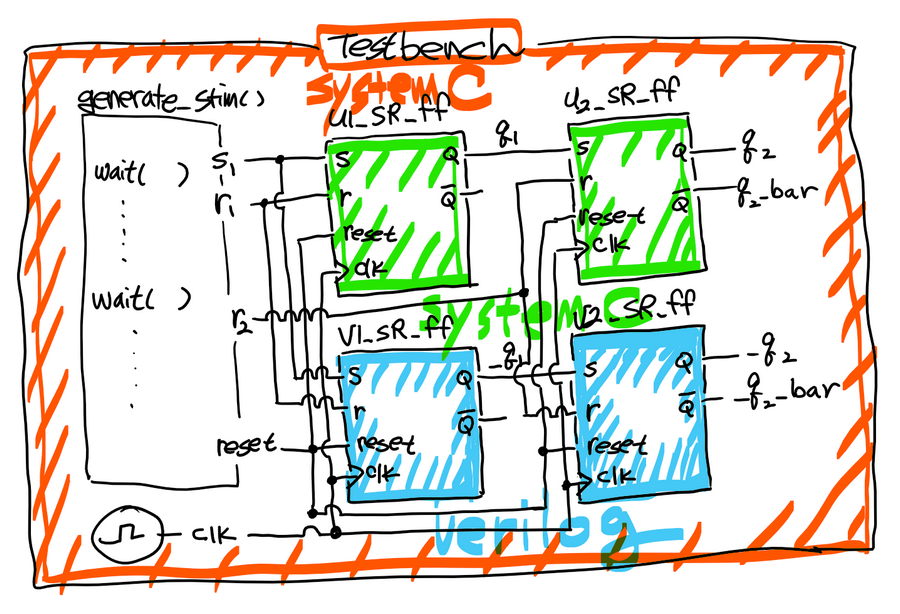 Testbench
systemC
generate_stim()
wait( )
wait( )
s1
r1
r2
reset
clk
u1_SR_ff
s
r
reset
clk
Q
Q
q1
u2_SR_ff
s
r
reset
clk
Q
Q
q2
q2-bar
systemC
V1_SR_ff
s
r
reset
clk
Q
Q
_q1
V2_SR_ff
s
r
reset
clk
Q
Q
_q2
_q2-bar
Verilog